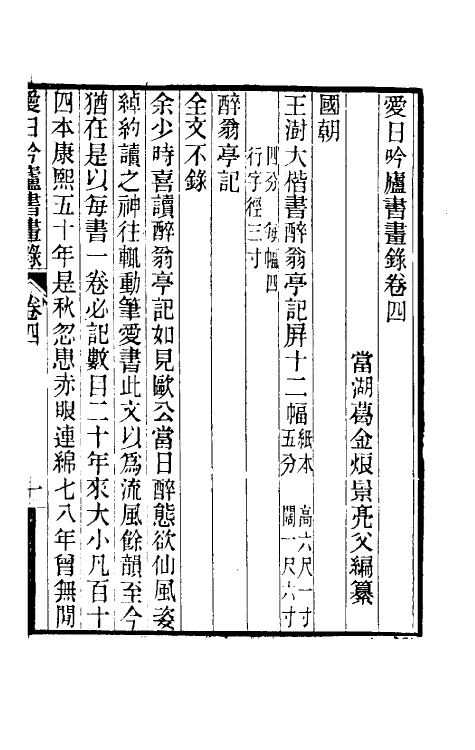 愛日吟廬書畫錄卷四
當湖葛金烺景亮父編纂
國朝
王澍大楷書醉翁亭記屏十二幅紙本 高六尺一寸五分 闊一尺六寸
四分 每幅四行字徑三寸
醉翁亭記
全文不錄
余少時喜讀醉翁亭記如見歐公當日醉態欲仙風姿
綽約讀之神往輒動筆愛書此文以爲流風餘韻至今
猶在是以每書一卷必記數日二十年來大小凡百十
四本康熙五十年是秋忽患赤眼連綿七八年曾無閒
愛日吟廬書畫錄 卷四 一